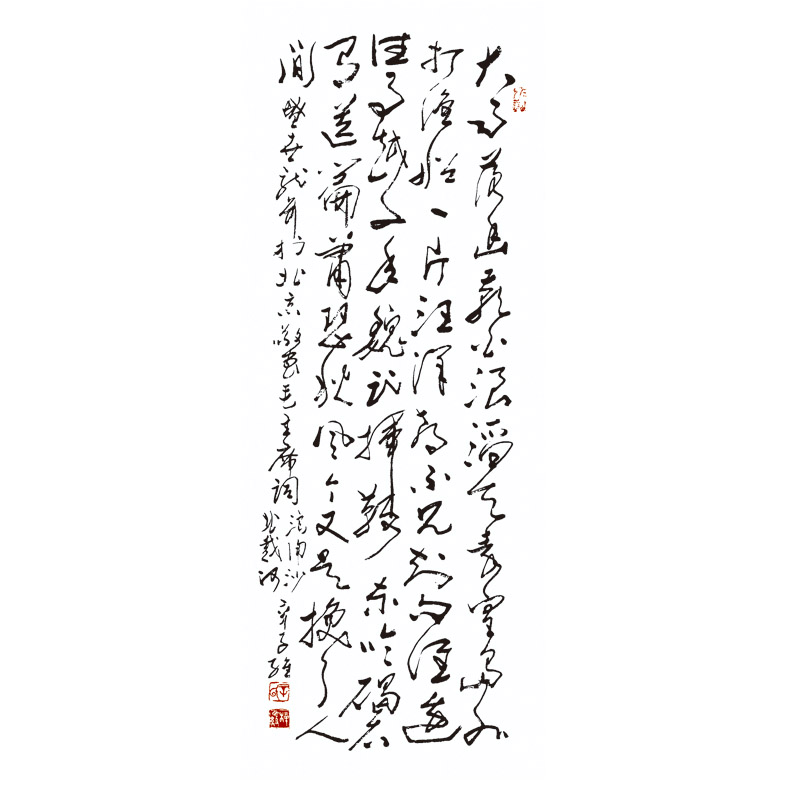 大雨落幽燕白浪滔天秦皇岛外
打渔船一片汪洋都不见知向谁边
往事越千年魏武挥鞭东临碣石
有遗篇萧瑟秋风今又是换了人
间 龙年于北京敬书毛主席词
浪淘沙
北戴河